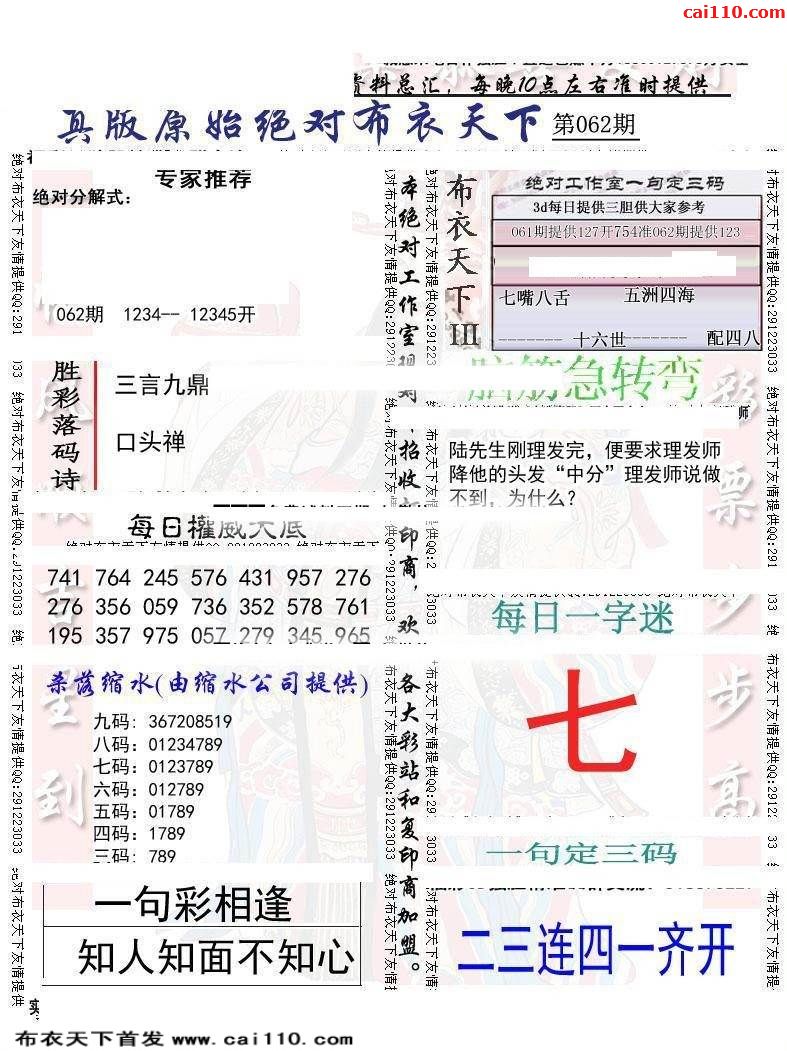 cai110.com
资料总汇，每晚10点左右准时提供
真版原始绝对布衣天下 第062期
专家推荐
绝对分解式:
062期 1234-- 12345开
胜彩落码诗
三言九鼎
口头禅
每日权威大底
741 764 245 576 431 957 276
276 356 059 736 352 578 761
195 357 975 057 279 345 965
杀落缩水(由缩水公司提供)
九码: 367208519
八码: 01234789
七码: 0123789
六码: 012789
五码: 01789
四码: 1789
三码: 789
一句彩相逢
知人知面不知心
各大彩站和复印商加盟。
布衣天下III
绝对工作室一句定三码
3d每日提供三胆供大家参考
061期提供127开754准062期提供123
七嘴八舌 五洲四海
-------- 十六世-------- 配四八
脑筋急转弯
陆先生刚理发完，便要求理发师
降他的头发“中分”理发师说做
不到，为什么？
每日一字迷
七
一句定三码
二三连四一齐开
彩票步步高
绝对布衣天下友情提供QQ:291223033
布衣天下首发 www.cai110.com